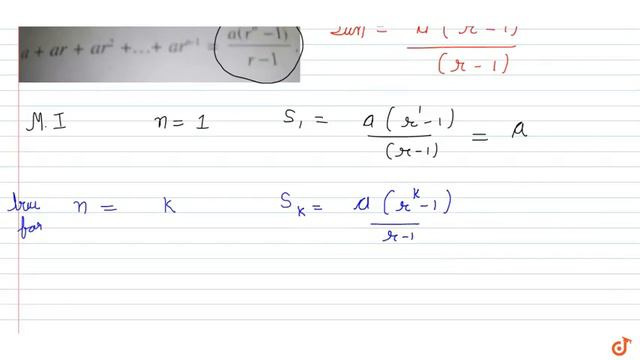 a + ar + ar² + ... + arⁿ⁻¹ = a(rⁿ - 1) / r - 1
Sum = a (r - 1) / (r - 1)
M.I n = 1 S₁ = a (r¹ - 1) / (r - 1) = a
true for n = k Sₖ = a (rᵏ - 1) / r - 1